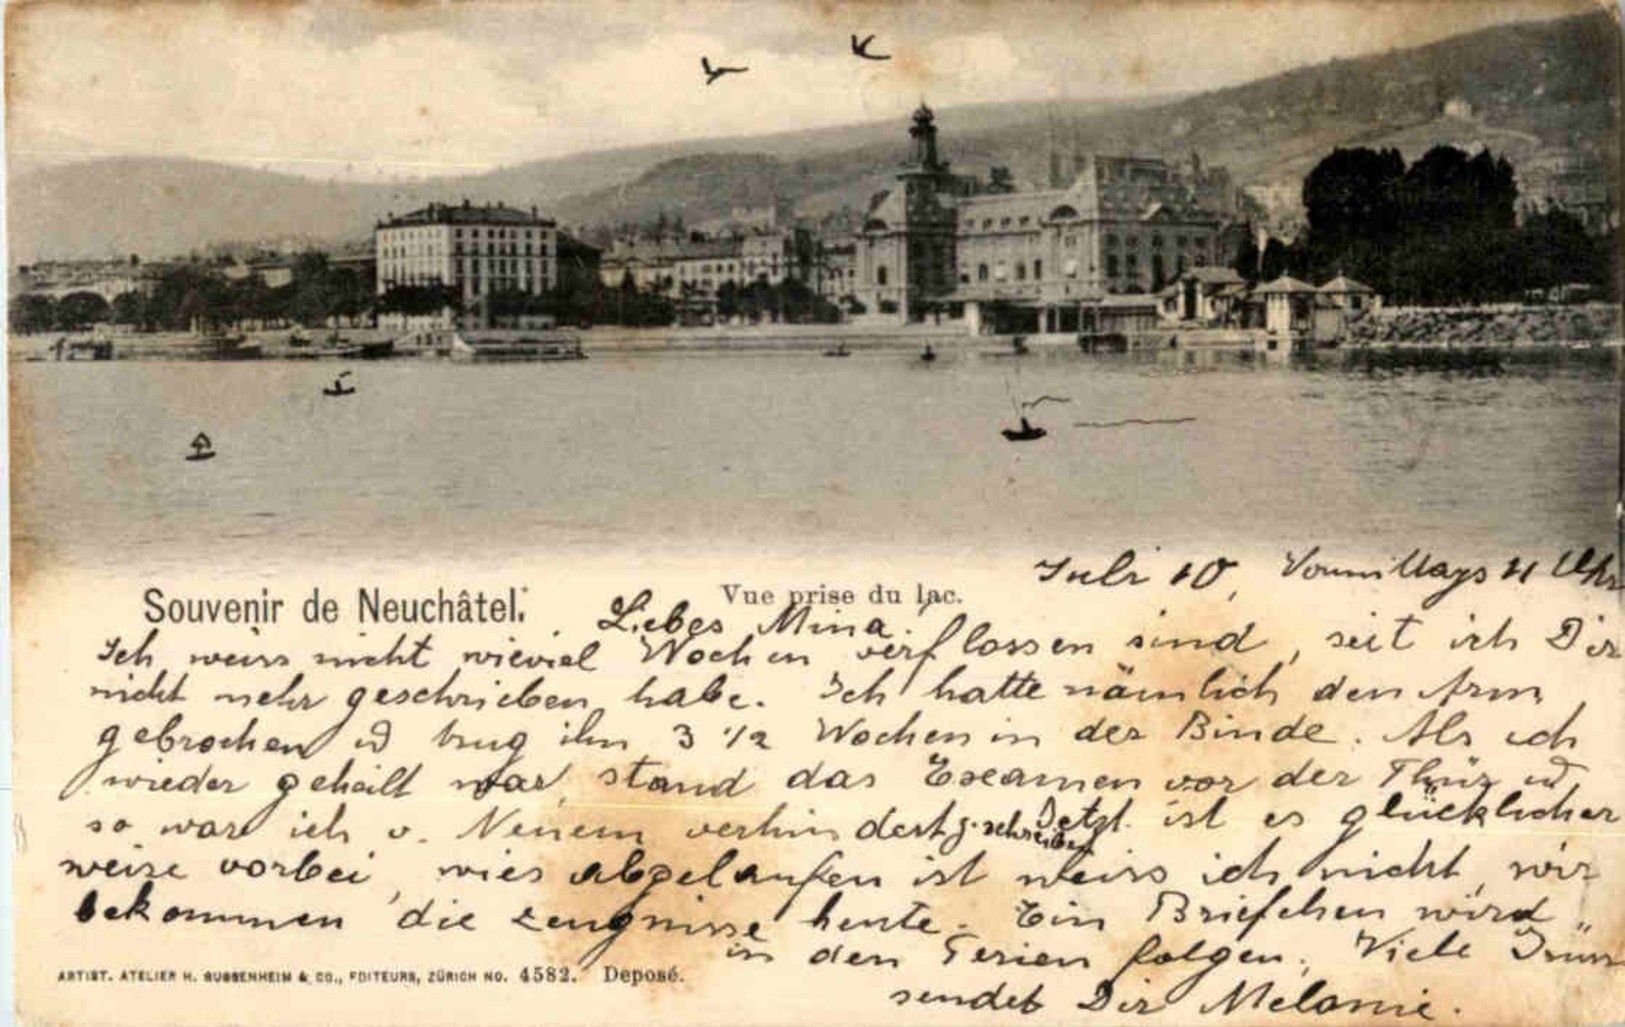 Juli 10, Vormittags 11 Uhr
Souvenir de Neuchâtel.
Vue prise du lac.
Liebes Mina,
Ich weiss nicht wieviel Wochen verflossen sind, seit ich Dir
nicht mehr geschrieben habe. Ich hatte nämlich den Arm
gebrochen u trug ihn 3 1/2 Wochen in der Binde. Als ich
wieder geheilt war, stand das Examen vor der Thür u
so war ich v. Neuem verhindert z. schreiben Jetzt ist es glücklicher
weise vorbei, wies abgelaufen ist weiss ich nicht, wir
bekommen die Zeugnisse heute. Ein Briefchen wird
in den Ferien folgen. Viele
sendet Dir Melanie.
ARTIST. ATELIER H. GUGGENHEIM & CO., EDITEURS, ZÜRICH NO. 4582. Deposé.